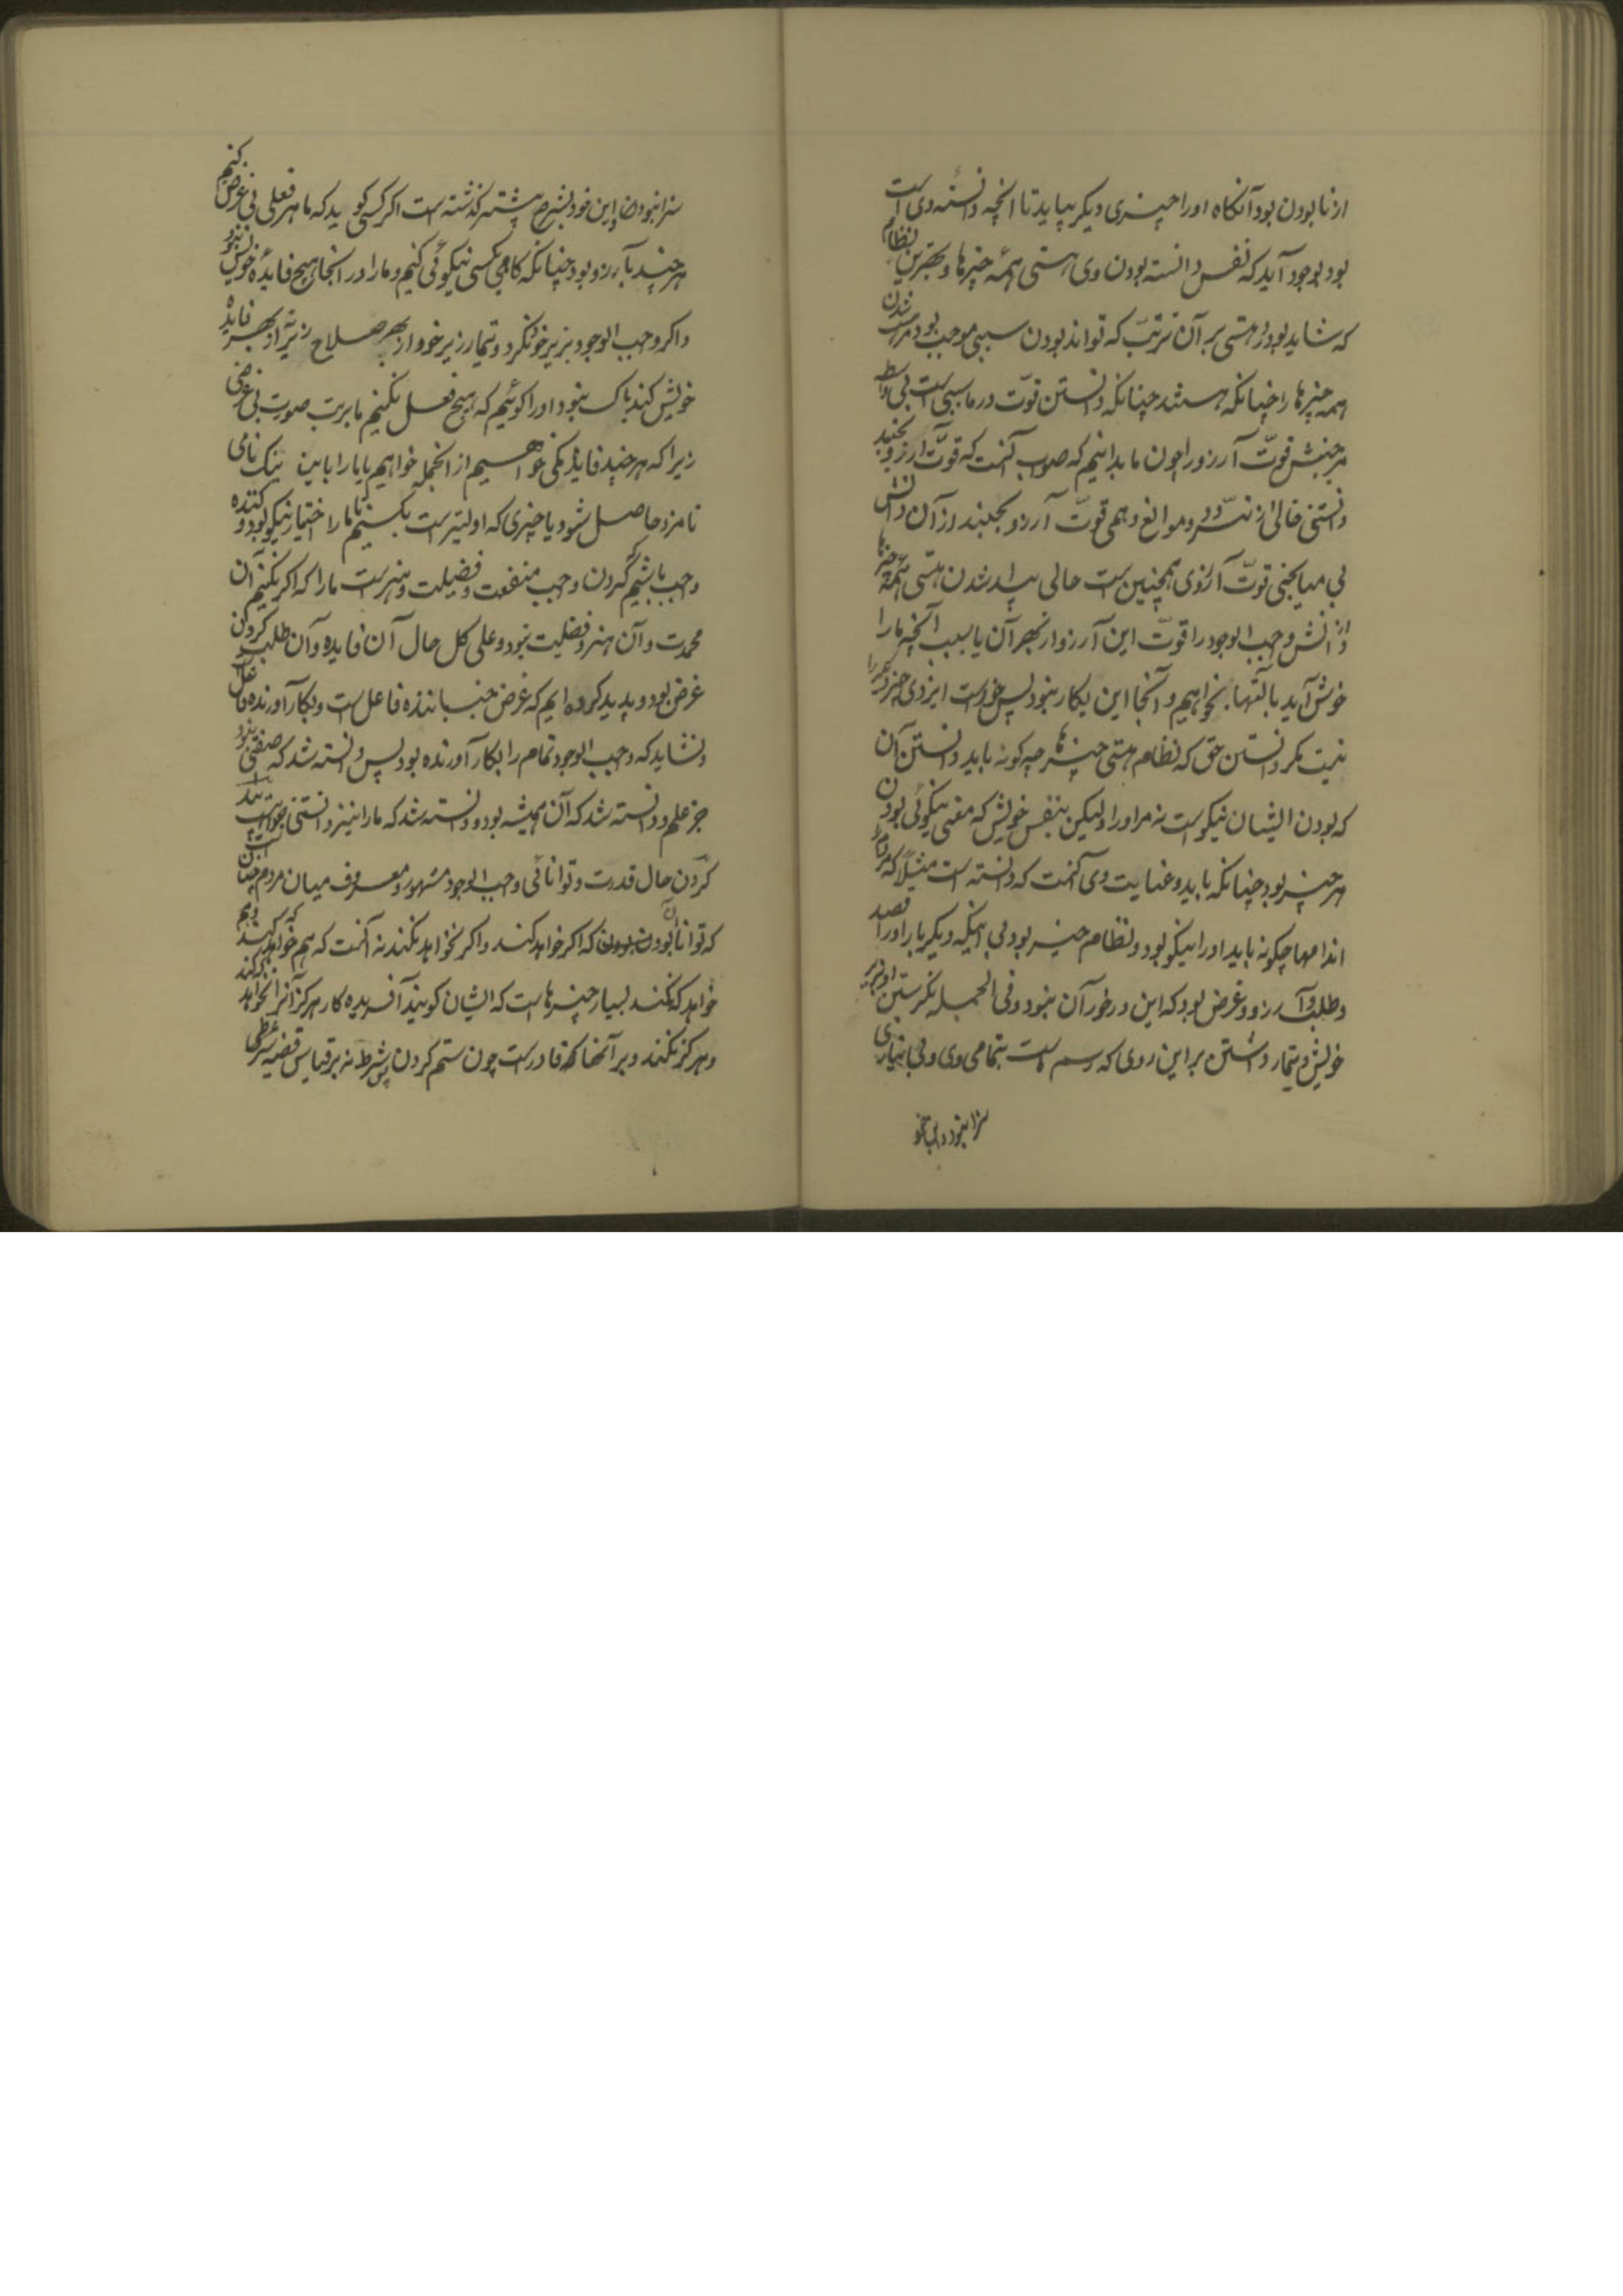 از نابودن بود آنکاه او را چیزی دیگر بباید تا انچه دانسته وی است
بود بوجود آید که نفس دانسته بودن وی هستی همه چیزها و بهترین نظام
که شاید بود هستی بر آن ترتیب که تواند بودن سببی موجب بود مر شدن
همه چیزها را چنانکه هستند چنانکه دانستن قوّت در ما سببی است بی واسطه
مر جنبش قوّت آرزو را چون ما بدانیم که صواب آنست که قوّت آرزو بجنبد
دانستنی خالی از تردّد و موانع وهمی قوّت آرزو بجنبد از آن دانش
بی میانجی قوّت آرزوی همچنین است حالی پدید شدن هستی همه چیزها
از دانش واجب الوجود را قوّت این آرزو از بهر آن یا سبب آنچه ما را
خوش آید بالتها بخواهیم و آنجا این بکار نبود پس خواست ایزدی چیز دیگر را
نیست مکر دانستن حق که نظام هستی چیزها چه کونه باید و دانستن آن
که بودن ایشان نیکوست نه مر او را ولیکن بنفس خویش که معنی نیکوئی بودن
هر چیز بود چنانکه باید و عنایت وی آنست که دانسته است مثلاً که مردم را
اندامها چکونه باید او را نیکو بود و نظام خیر بود بی اینکه دیکر بار او را قصد
و طلب و آرزو و غرض بود که این درخور آن نبود و فی الجمله نکرستن او بزیر
خویش و تیمار داشتن بر این روی که رسم است بتمامی وی و بی نیازی
سزا نبود
سزا نبود و این خود بشرح پیشتر کذشته است اکر کسی کوید که ما هر فعلی بی غرض کنیم
هر چند بآرزو بود چنانکه کاهی بکسی نیکوئی کنیم و ما را در آنجا هیچ فایده خویش نبود
و اکر واجب الوجود بزیر خود نکرد و تیمار زیر خورد از بهر صلاح زیر نه از بهر فایده
خویش کند باک نبود او را کوئیم که هیچ فعل نکنیم ما بدین صورت بی غرضی
زیرا که هر چند فایده مکی خواهیم از انجمله خواهیم یا ما را باین نیک نامی
نامزد حاصل شود یا چیزی که اولیتر است بکنیم تا ما را اختیار نیکو بود و کننده
واجب باشیم که کردن واجب منفعت و فضیلت و هنر است ما را که اکر نکنیم آن
محمدت و آن هنر و فضیلت نبود و علی کل حال آن فایده و آن طلب کردن
غرض بود و پدید کرده ایم که غرض جنباننده فاعل است و بکار آورنده فاعل
و نشاید که واجب الوجود تمام را بکار آورنده بود پس دانسته شد که صفتی نبود
جز علم و دانسته شد که آن همیشه بود و دانسته شد که ما را نیز دانستنی
کردن حال قدرت و توانائی واجب الوجود مشهور و معروف میان مردم چنان است
که توانا بودن آن بودن که اکر خواهد کند و اکر نخواهد نکند نه آنست که هم خواهد که کند و هم
خواهد که نکند بسیار چیزهاست که ایشان کویند آفریده کار هرکز آنرا نخواهد که کند
و هرکز نکند و بر آنها که قادر است چون ستم کردن پس شرط نه بر قیاس قضیه شرطی